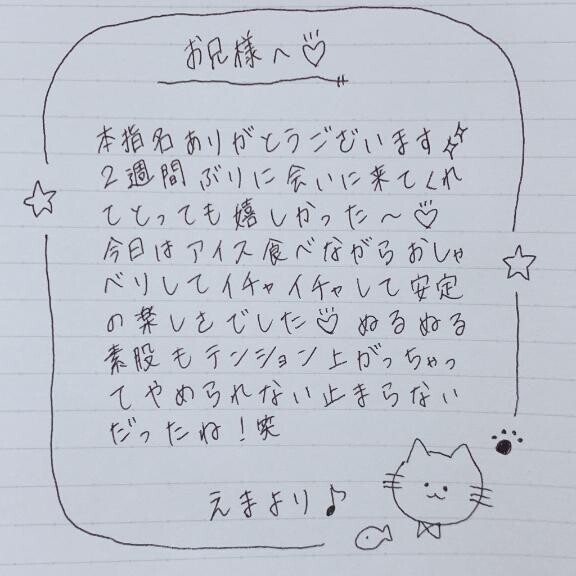 お兄様へ♡
本指名ありがとうございます
2週間ぶりに会いに来てくれ
てとっても嬉しかった〜♡
今日はアイス食べながらおしゃ
べりしてイチャイチャして安定
の楽しさでした♡ ぬるぬる
素股もテンション上がっちゃっ
てやめられない止まらない
だったね！笑
えまより♪